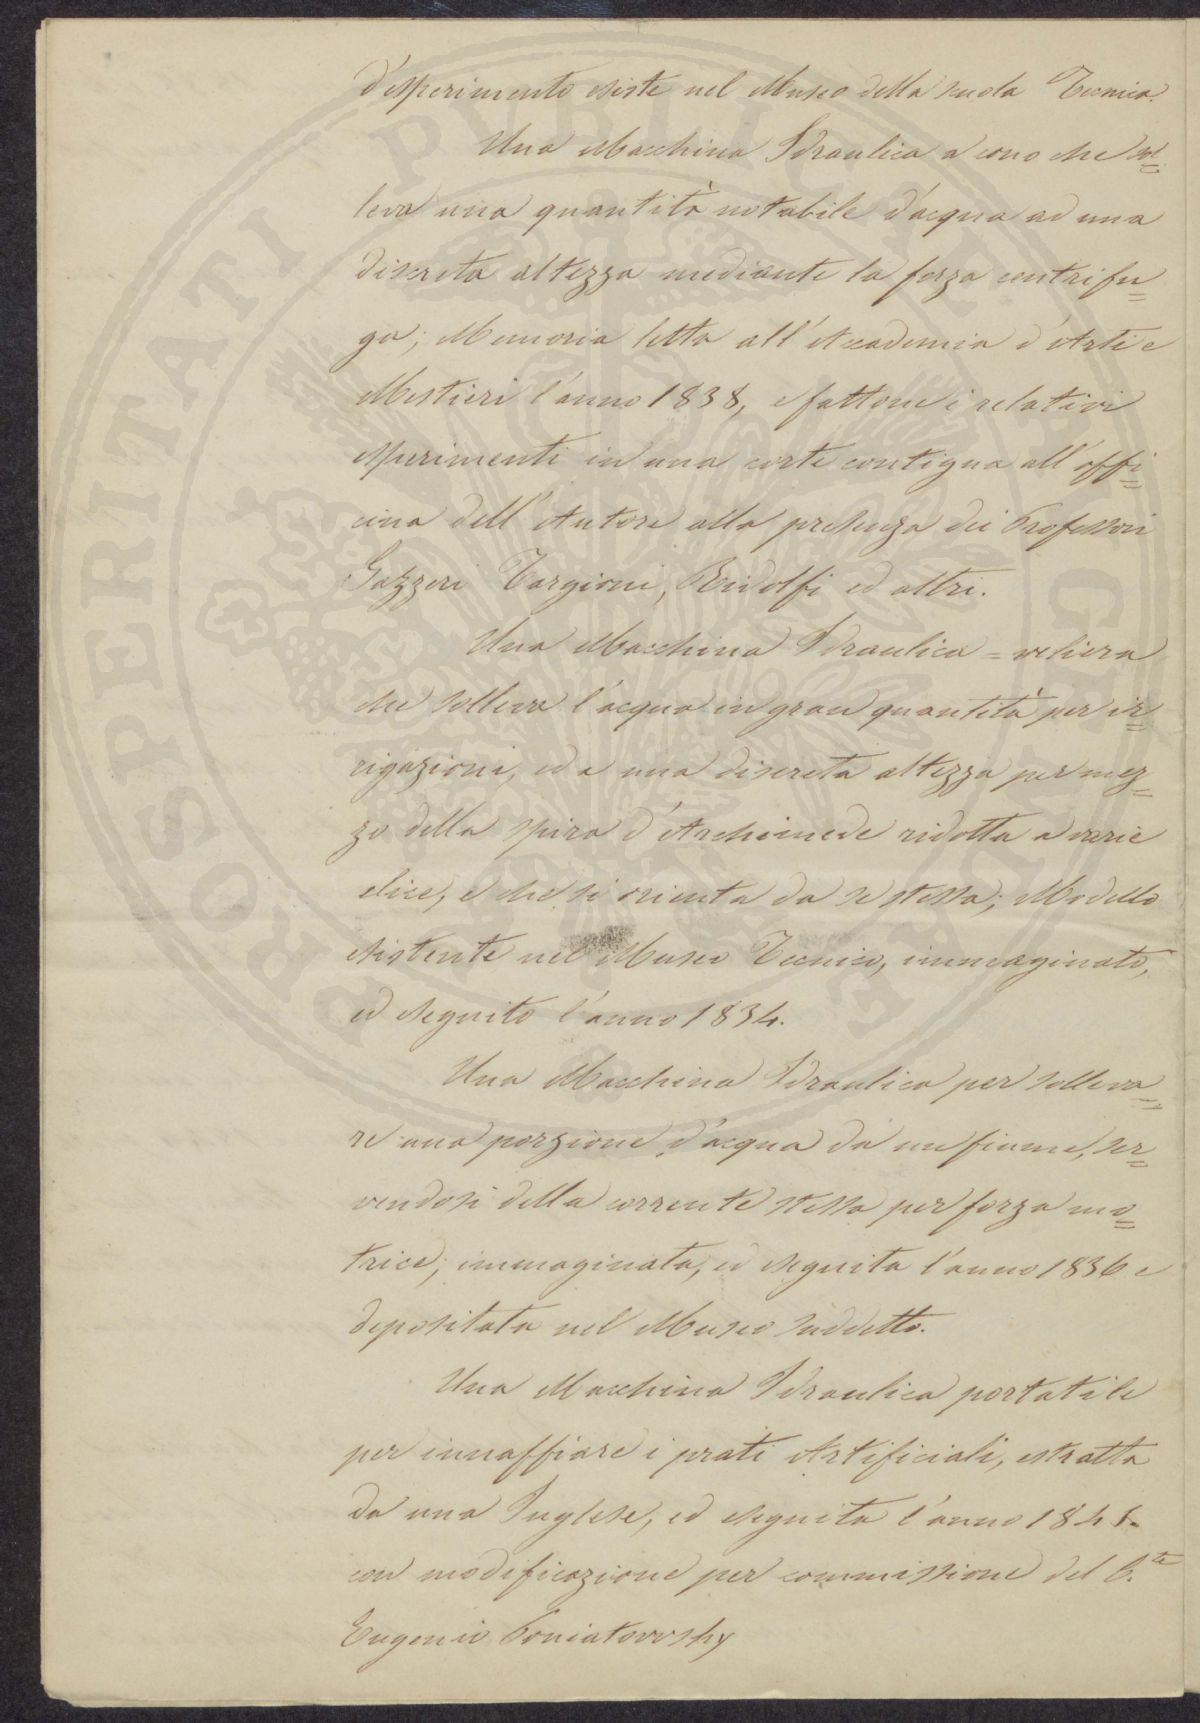 d'esperimento esiste nel Museo della scuola Tecnica.
Una Macchina Idraulica a cono che sol=
leva una quantità notabile d'acqua ad una
discreta altezza mediante la forza centrifu=
ga; Memoria letta all'Accademia d'Arti e
Mestieri l'anno 1838, e fattone i relativi
esperimenti in una corte contigua all'offi=
cina dell'Autore alla presenza dei Professori
Gazzeri Targioni, Ridolfi ed altri.
Una Macchina Idraulica = veliera
che solleva l'acqua in gran quantità per ir=
rigazioni, ed a una discreta altezza per mez=
zo della spira d'Archimede ridotta a varie
elice, e che si orienta da se stessa; Modello
esistente nel Museo Tecnico, immaginato,
ed eseguito l'anno 1834.
Una Macchina Idraulica per solleva=
re una porzione d'acqua da un fiume, ser=
vendosi della corrente stessa per forza mo=
trice; immaginata, ed eseguita l'anno 1836 e
depositata nel Museo suddetto.
Una Macchina Idraulica portatile
per innaffiare i prati Artificiali, estratta
da una Inglese, ed eseguita l'anno 1841.
con modificazione per commissione del C.te
Eugenio Poniatowsky
PROSPERITATI PVBLICAE AVGENDAE